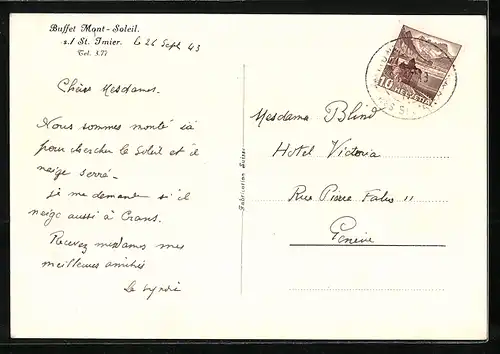 Buffet Mont-Soleil.
s./ St. Imier.
Tel. 3.77
le 26 Sept 43
Chères Mesdames.
Nous sommes monté ici
pour chercher le Soleil et il
neige serré -
je me demande si il
neige aussi à Crans.
Recevez mesdames mes
meilleures amitiés
Fabrication Suisse
10 HELVETIA
Mesdames Blind
Hotel Victoria
Rue Pierre Fatio 11
Genève